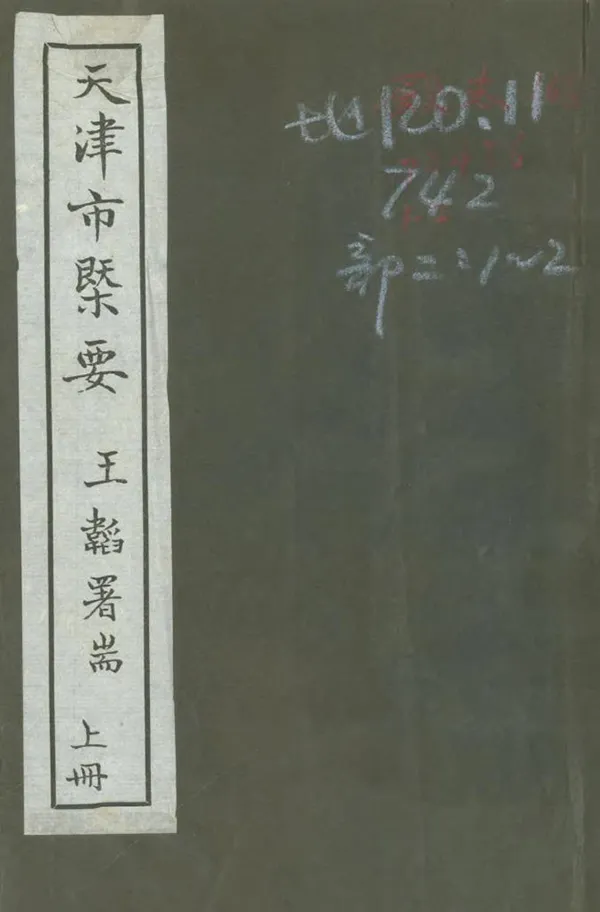 天津市槩要
王韜署耑
上冊
地120.11
742
部二:1~2